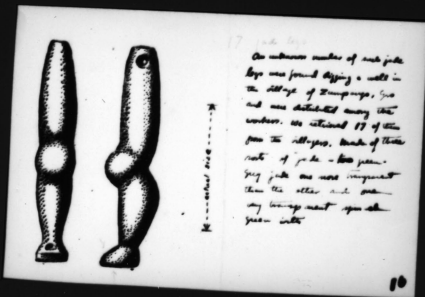 17 jade legs
An unknown number of such jade
legs were found digging a well in
the village of
and were distributed among the
workers. We retrieved 17 of them
from the villagers. Made of three
sorts of jade - two green.
Grey jade one more transparent
than the other and one
very
green
actual size
16